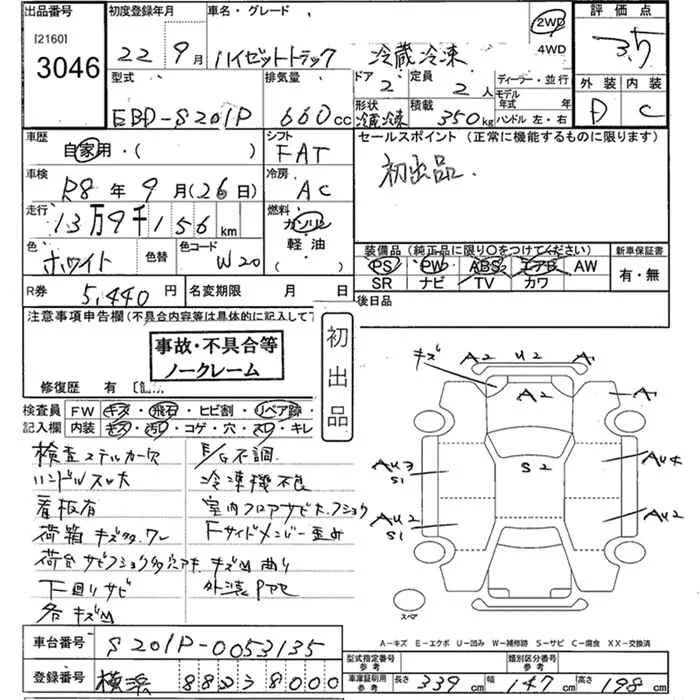 出品番号 初度登録年月 車名・グレード 評価点
[2160] 3046 22年9月 ハイゼットトラック 冷蔵冷凍 2WD 4WD 3.5
型式 排気量 ドア 定員 ディーラー・並行 外装 内装
EBD-S201P 660cc 2 2人 モデル年式 年 D C
形状 冷蔵冷凍 積載 350kg ハンドル 左・右
車歴 自家用・( ) シフト FAT セールスポイント (正常に機能するものに限ります)
車検 R8年9月(26日) 冷房 AC 初出品.
走行 13万9千156km 燃料 ガソリン 軽油 ( )
色 ホワイト 色替 色コード W20
装備品(純正品に限り〇をつけてください) 新車保証書
PS PW ABS エアB AW 有・無
SR ナビ TV カワ
R券 5,440円 名変期限 月 日 後日品
注意事項申告欄(不具合内容等は具体的に記入して下
事故・不具合等
ノークレーム
初出品
修復歴 有
検査員 FW キズ・飛石・ヒビ割・リペア跡・
記入欄 内装 キズ・汚れ・コゲ・穴・スレ・キレ
検査ステッカー欠 E/G不調.
ハンドルスレ大 冷凍機不良
看板有 室内フロアサビ大.フショク
荷箱キズ Fサイドメンバー歪み
荷台サビフショク多穴 キズ凹有り
下回りサビ 外装
各キズ凹
キズ A2 U2 A1
A2 A1
AU3 S1 S2 AU4
AU2 S1 AU2
スペア
A-キズ E-エクボ U-凹み W-補修跡 S-サビ C-腐食 XX-交換済
車台番号 S201P-0053135
型式指定番号 参考 類別区分番号 参考
登録番号 横浜 880
車庫証明用 参考 長さ 339cm 幅 147cm 高さ 198cm